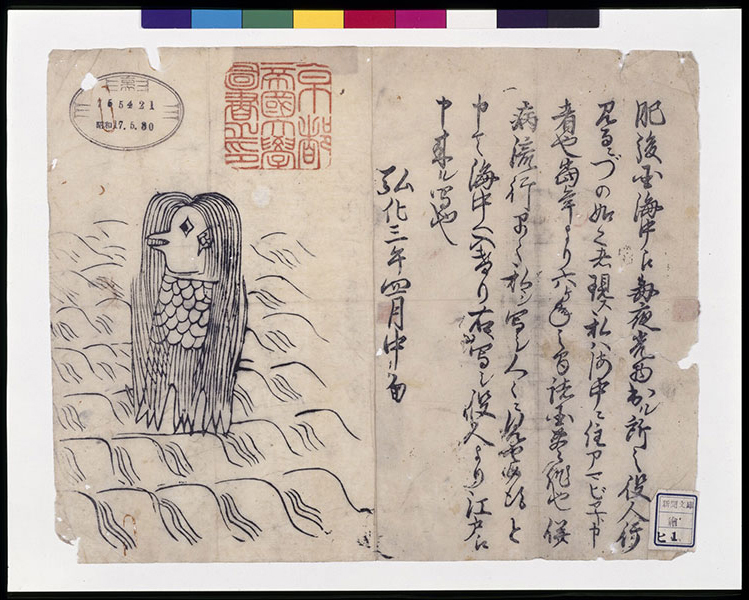 肥後国海中え毎夜光物出ル所之役人行
見るニづの如く者現ス私ハ海中ニ住アマビヱト申
者也当年より六ケ年之間諸国豊作也併
病流行早々私ヲ写シ人々ニ見せ候得と
申て海中へ入けり右写シ役人より江戸え
申来ル写也
弘化三年四月中旬
京都
帝國大學
圖書之印
165421
昭和17.5.30
新聞文庫
繪
ヒ 1